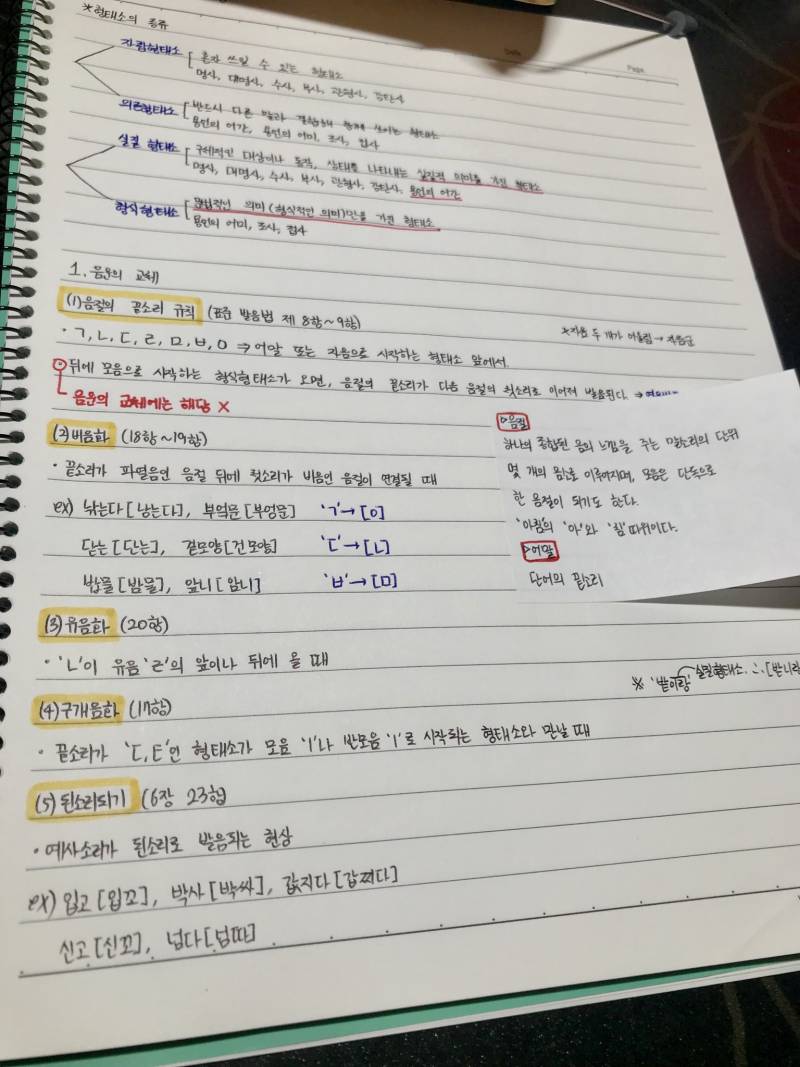 *형태소의 종류
자립형태소
혼자 쓰일 수 있는 형태소
명사, 대명사, 수사, 부사, 관형사, 감탄사
의존형태소
반드시 다른 말과 결합해 함께 쓰이는 형태소
용언의 어간, 용언의 어미, 조사, 접사
실질 형태소
구체적인 대상이나 동작, 상태를 나타내는 실질적 의미를 가진 형태소
명사, 대명사, 수사, 부사, 관형사, 감탄사, 용언의 어간
형식형태소
문법적인 의미(형식적인 의미)만을 가진 형태소
용언의 어미, 조사, 접사
1. 음운의 교체
(1)음절의 끝소리 규칙 (표준 발음법 제 8항~9항)
*자음 두 개가 어울림→자음군
·ㄱ,ㄴ,ㄷ,ㄹ,ㅁ,ㅂ,ㅇ ⇒ 어말 또는 자음으로 시작하는 형태소 앞에서
뒤에 모음으로 시작하는 형식형태소가 오면, 음절의 끝소리가 다음 음절의 첫소리로 이어져 발음된다. ⇒
음운의 교체에는 해당 X
(2)비음화 (18항~19항)
·끝소리가 파열음인 음절 뒤에 첫소리가 비음인 음절이 연결될 때
ex) 낚는다[낭는다], 부엌문[부엉문] 'ㄱ'→[ㅇ]
닫는[단는], 겉모양[건모양] 'ㄷ'→[ㄴ]
밥물[밤물], 앞니[암니] 'ㅂ'→[ㅁ]
▷음절
하나의 종합된 음의 느낌을 주는 말소리의 단위
몇 개의 음소로 이루어지며, 모음은 단독으로
한 음절이 되기도 한다.
'아침'의 '아'와 '침'따위이다.
▷어말
단어의 끝소리
(3)유음화 (20항)
·'ㄴ'이 유음'ㄹ'의 앞이나 뒤에 올 때
※ '밭이랑' 실질형태소 ∴[반니랑
(4)구개음화 (17항)
·끝소리가 'ㄷ,ㅌ'인 형태소가 모음 'ㅣ'나 반모음 'ㅣ'로 시작되는 형태소와 만날 때
(5)된소리되기 (6장 23항)
·예사소리가 된소리로 발음되는 현상
ex) 입고[입꼬], 박사[박싸], 값지다[갑찌다]
신고[신꼬], 넘다[넘따]